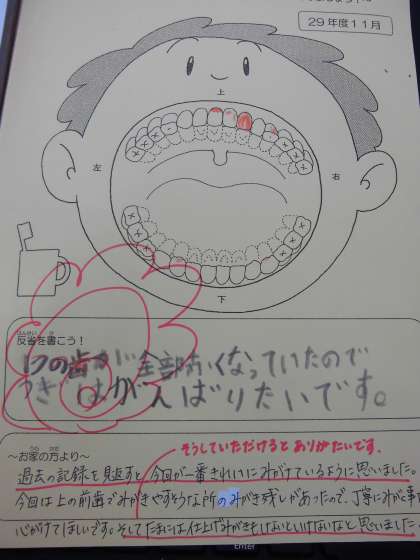 29年度11月
上
左
右
下
反省を書こう！
の歯が全部くなっていたので
つぎはがんばりたいです。
そうしていただけるとありがたいです。
～お家の方より～
過去の記録を見返すと今回が一番きれいにみがけているように思いました。
今回は上の前歯でみがきやすそうな所のみがき残しがあったので、丁寧にみがく事
心がけてほしいです。そしてたまには仕上げみがきもしないといけないなと思いました。
Enter